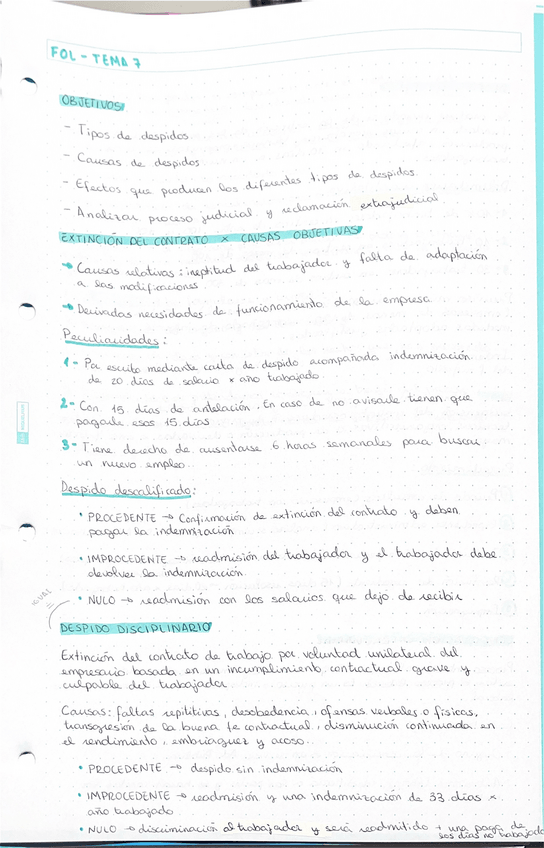 FOL - TEMA 7
OBJETIVOS
- Tipos de despidos
- Causas de despidos
- Efectos que producen los diferentes tipos de despidos.
- Analizar proceso judicial y reclamación extrajudicial
EXTINCIÓN DEL CONTRATO x CAUSAS OBJETIVAS
→ Causas relativas: ineptitud del trabajador y falta de adaptación
a las modificaciones
→ Derivadas necesidades de funcionamiento de la empresa.
Peculiaridades:
1- Por escrito mediante carta de despido acompañada indemnización
de 20 días de salario x año trabajado.
2- Con 15 días de antelación. En caso de no avisarle tienen que
pagarle esos 15 días
3- Tiene derecho de ausentarse 6 horas semanales para buscar
un nuevo empleo.
Despido descalificado:
• PROCEDENTE → Confirmación de extinción del contrato y deben
pagar la indemnización
• IMPROCEDENTE → readmisión del trabajador y el trabajador debe
devolver la indemnización
• NULO → readmisión con los salarios que dejo de recibir
IGUAL
=
DESPIDO DISCIPLINARIO
Extinción del contrato de trabajo por voluntad unilateral del
empresario basada en un incumplimiento contractual grave y
culpable del trabajador
Causas: faltas repititivas, desobedencia, ofensas verbales o físicas,
transgresión de la buena fe contractual, disminución continuada en
el rendimiento, embriaguez y acoso.
• PROCEDENTE → despido sin indemnización
• IMPROCEDENTE → readmisión y una indemnización de 33 días x
año trabajado
• NULO → discriminación al trabajador y será readmitido + una paga de
los días no trabajado